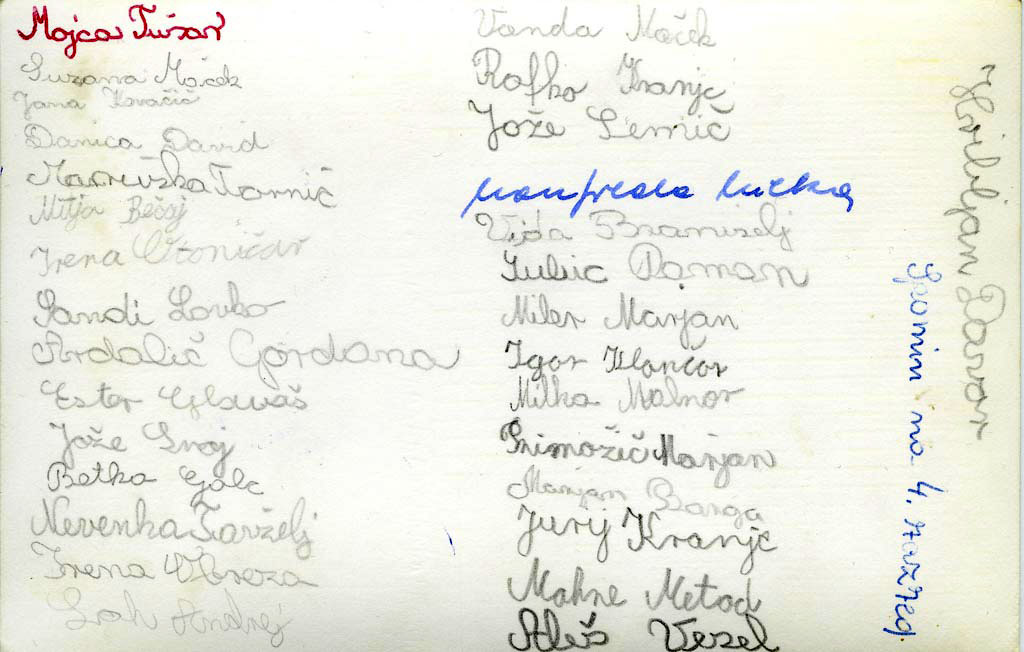 Mojca Tušar
Suzana Maček
Jana Kovačič
Danica David
Maruška Tornič
Mitja Bečaj
Irena Otoničar
Sandi Lovko
Ardalić Gordana
Ester Glavaš
Jože Sroj
Betka Gale
Nevenka Tavželj
Irena Obreza
Lah Andrej
Vanda Maček
Rafko Kranjc
Jože Lemič
Vida Braniselj
Roman
Miler Marjan
Igor Klančar
Milka Malnar
Primožič Marjan
Marjan Barga
Jurij Kranjc
Mahne Metod
Aleš Vesel
Spomin na 4. razred.
Hribljan Davor